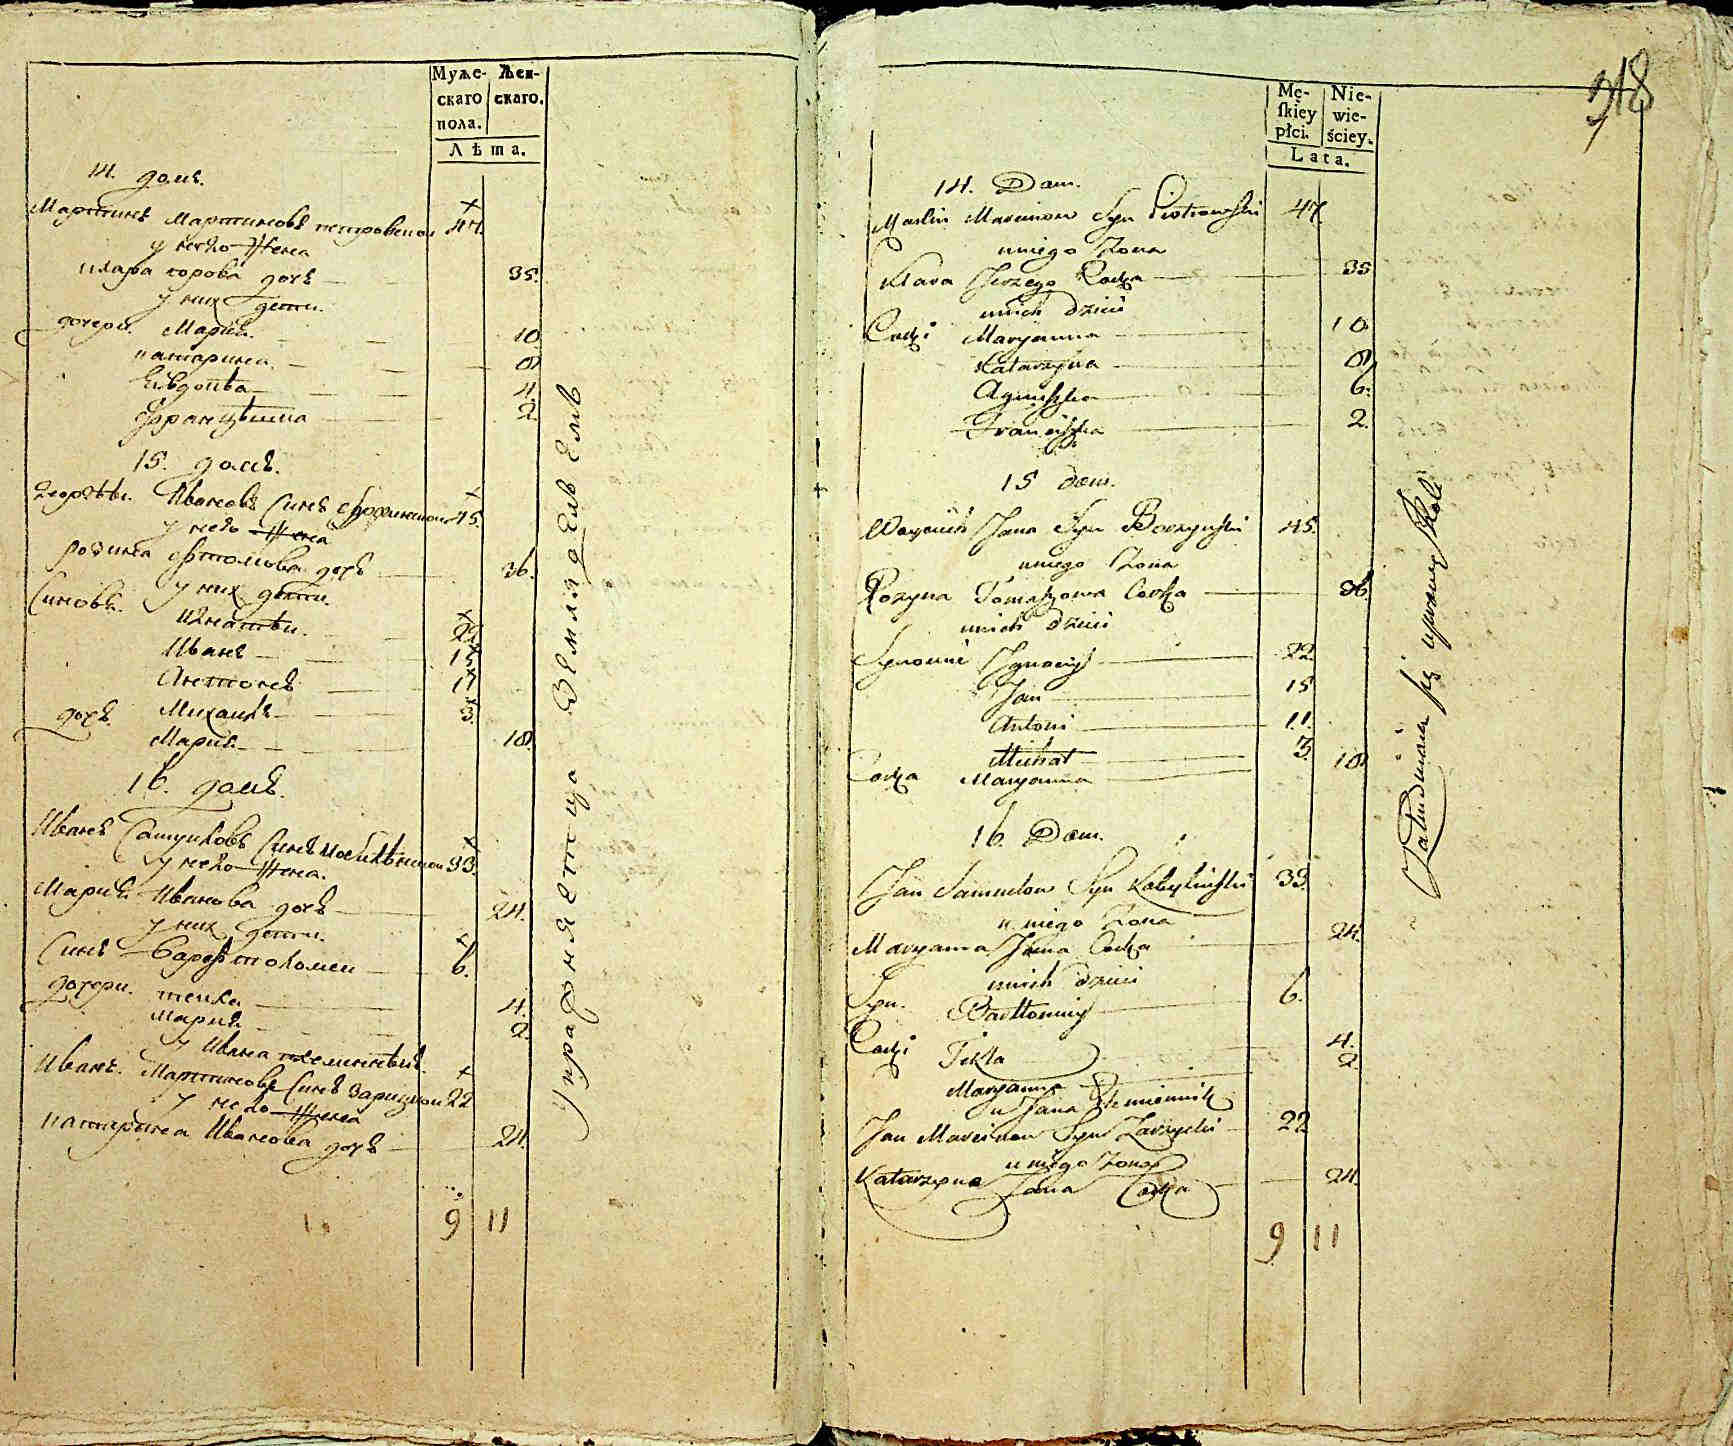 Муже- Жен-
скаго скаго.
пола.
Лѣта.
14. домъ.
Мартинъ Мартиновъ петровской 47.
у него жена
клара горова дочъ 35.
у них дети.
дочери. Мария. 10
катарина 8
Евдопѣа 4.
Францѣшка 2.
15. домъ.
Ивановъ Синъ 45.
у него жена
розина дочъ 36.
у них дети.
Синовѣ. Игнатѣи. 22
Иванъ 15
Антонъ 11
Михаилъ 3.
дочъ. Мария 18.
16. домъ.
Иванъ Самуиловъ Синъ 33.
у него жена.
Мария Иванова дочъ 24.
у них дети.
Синъ Варфтоломеи 6.
дочери. текла 4.
Мария 2.
у Ивана племѣнникъ.
Иванъ. Мартиновъ Синъ Зарицкои 22
у него жена
катарина Иванова дочъ 24.
9 11
Упражняетца Землядѣлѣемъ
318
Mę- Nie-
skiey wie-
płci. ściey.
Lata.
14. Dom.
Marcin Marcinow Syn Piotrowski 47.
uniego Zona
Klara Jerzego Corka 35
unich dzieci
Corki Maryanna 10.
Katarzyna 8.
Agniszka 6.
Franciszka 2.
15 dom.
Jana Syn 45.
uniego Zona
Rozyna Tomaszowa Corka 36.
unich dzieci
Synowie Ignacy 22.
Jan 15
Antoni 11.
Michał 3.
Corka Maryanna 18
16. Dom.
Jan Samuelow Syn Kobylinski 33.
u niego Zona
Maryanna Jana Corka 24.
unich dzieci
Syn. Bartłomiy 6.
Corki Tekla 4.
Maryanna 2.
u Jana Plemiennik
Jan Marcinow Syn Zarzycki 22
u niego Zona
Katarzyna Jana Corka 24.
9 11
Zatrudniaia się uprawą Roli